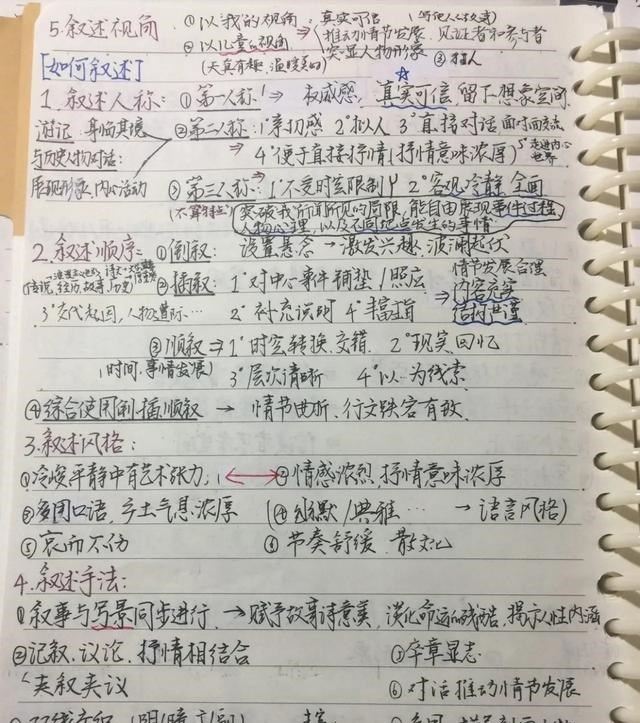 5.叙述视角 ①以我的视角 真实可信
②以儿童的视角 推动情节发展 见证者和参与者
(天真有趣,温暖美好) 突显人物形象
[如何叙述]
1.叙述人称: ①第一人称 ⇒ 权威感,真实可信,留下想象空间
游记:身临其境 ②第二人称: 1°亲切感 2°拟人 3°直接对话
与历史人物对话: ⇒ 4°便于直接抒情(抒情意味浓厚) 5°走进内心世界
展现形象、内心活动 ③第三人称: 1°不受时空限制 2°客观冷静 全面
突破我所闻所见的局限,能自由展现事件过程
人物心理,以及不同地点发生的事情
2.叙述顺序: ①倒叙: 设置悬念 → 激发兴趣,波澜起伏
②插叙: 1°对中心事件铺垫/照应 情节发展合理
内容充实
3°交代起因, 2°补充说明 4°丰富 结构严谨
③顺叙 ⇒ 1°时空转换、交错 2°现实、回忆
(时间、事情发展) 3°层次清晰 4°以~为线索
④综合使用倒插顺叙 → 情节曲折、行文跌宕有致
3.叙述风格:
①冷峻平静中有艺术张力 ②情感浓烈,抒情意味浓厚
③多用口语,乡土气息浓厚 (④幽默/典雅… → 语言风格)
⑤哀而不伤 ⑥节奏舒缓、散文化
4.叙述手法:
①叙事与写景同步进行 → 赋予故事诗意美,淡化命运的残酷,揭示人性内涵
②记叙、议论、抒情相结合 ⑤卒章显志
夹叙夹议 ⑥对话推动情节发展